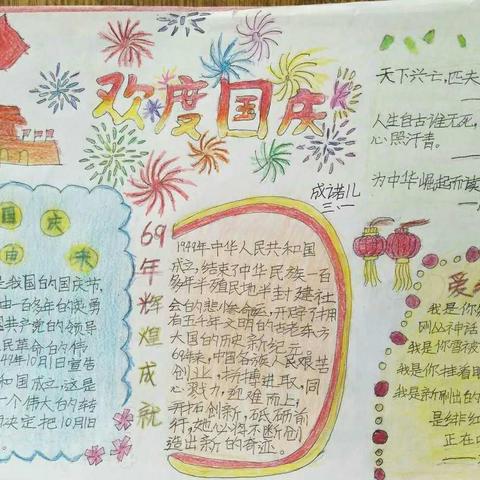 欢度国庆
成诺儿
三、一
天下兴亡,匹夫
人生自古谁无死,
心照汗青。
为中华崛起而读
国庆
由来
是我国的国庆节,
由一百多年的英勇
国共产党的领导
民革命的伟
949年10月1日宣告
和国成立,这是
一个伟大的转
决定把10月1日
69年辉煌成就
1949年中华人民共和国
成立,结束了中华民族一百
多年半殖民地半封建社
会的悲惨命运,开启了拥
有五千年文明的古老东方
大国的历史新纪元。
69年来,中国各族人民艰苦
创业,拼搏进取,同
心戮力,迎难而上,
开拓创新,砥砺前
行,她必将不断创
造出新的奇迹。
爱
我是你
神话
我是你雪被
我是你挂着
我是新刷出的
是绯红
正在